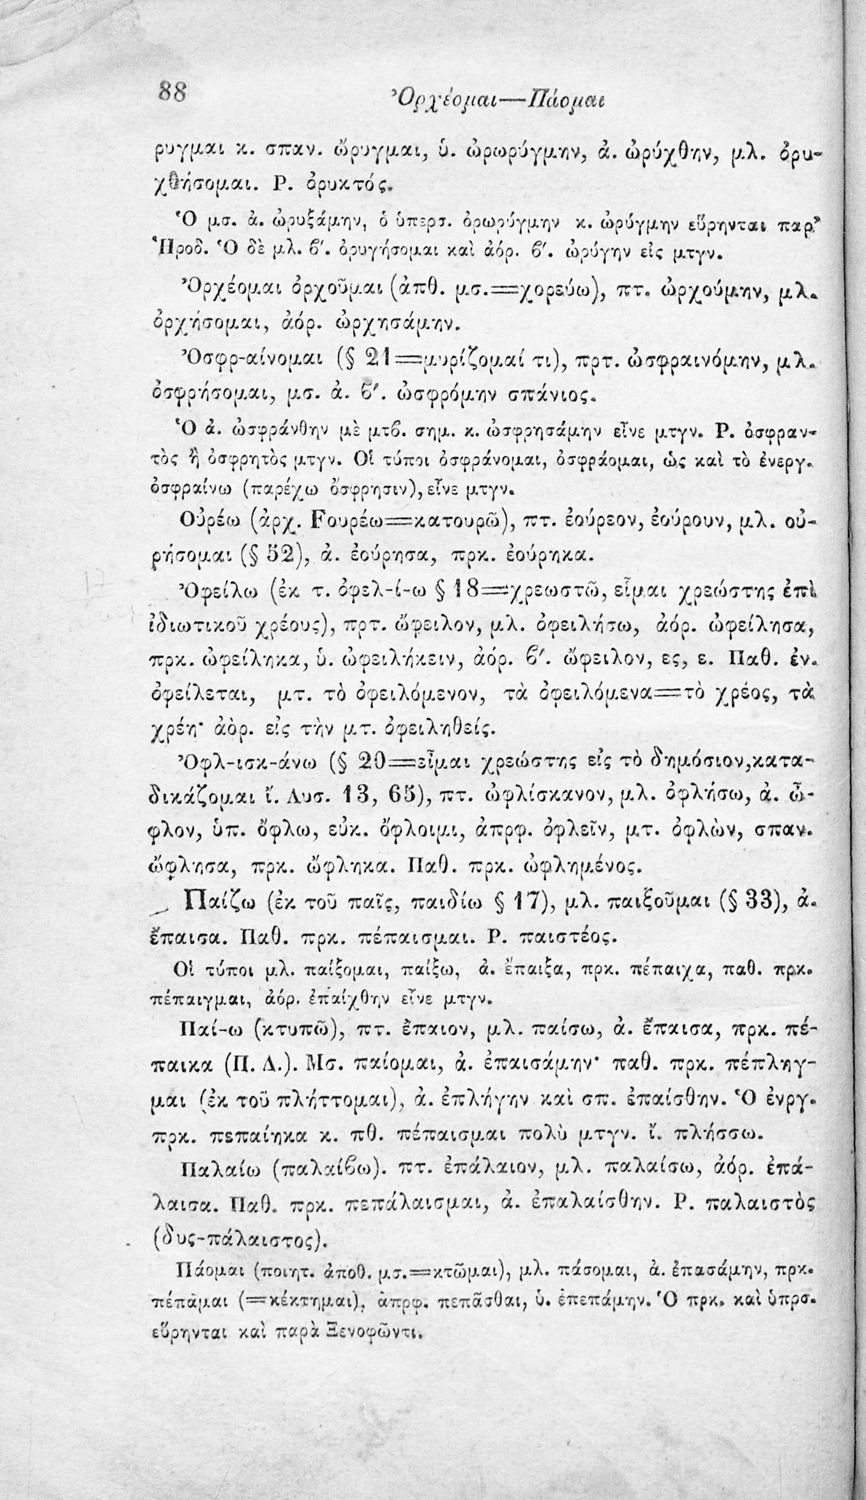 88
Ὀρχέομαι—Πάομαι
ρυγμαι κ. σπαν. ὤρυγμαι, ὑ. ὠρωρύγμην, ἀ. ὠρύχθην, μλ. ὀρυ-
χθήσομαι. Ρ. ὀρυκτός.
Ὁ μσ. ἀ. ὠρυξάμην, ὁ ὑπερσ. ὀρωρύγμην κ. ὠρύγμην εὕρηνται παρ'
Ἡροδ. Ὁ δὲ μλ. ϐ'. ὀρυγήσομαι καὶ ἀόρ. ϐ'. ὠρύγην εἰς μτγν.
Ὀρχέομαι ὀρχοῦμαι (ἀπθ. μσ.=χορεύω), πτ. ὠρχούμην, μλ.
ὀρχήσομαι, ἀόρ. ὠρχησάμην.
Ὀσφρ-αίνομαι (§ 21=μυρίζομαί τι), πρτ. ὠσφραινόμην, μλ.
ὀσφρήσομαι, μσ. ἀ. ϐ'. ὠσφρόμην σπάνιος.
Ὁ ἀ. ὠσφράνθην μὲ μτϐ. σημ. κ. ὠσφρησάμην εἶνε μτγν. Ρ. ὀσφραν-
τὸς ἢ ὀσφρητὸς μτγν. Οἱ τύποι ὀσφράνομαι, ὀσφράομαι, ὡς καὶ τὸ ἐνεργ.
ὀσφραίνω (παρέχω ὄσφρησιν), εἶνε μτγν.
Οὐρέω (ἀρχ. Fουρέω=κατουρῶ), πτ. ἐούρεον, ἐούρουν, μλ. οὐ-
ρήσομαι (§ 52), ἀ. ἐούρησα, πρκ. ἐούρηκα.
Ὀφείλω (ἐκ τ. ὀφελ-ί-ω § 18=χρεωστῶ, εἶμαι χρεώστης ἐπὶ
ἰδιωτικοῦ χρέους), πρτ. ὤφειλον, μλ. ὀφειλήσω, ἀόρ. ὠφείλησα,
πρκ. ὠφείληκα, ὑ. ὠφειλήκειν, ἀόρ. ϐ'. ὤφειλον, ες, ε. Παθ. ἐν.
ὀφείλεται, μτ. τὸ ὀφειλόμενον, τὰ ὀφειλόμενα=τὸ χρέος, τὰ
χρέη· ἀὸρ. εἰς τὴν μτ. ὀφειληθείς.
Ὀφλ-ισκ-άνω (§ 20=εἶμαι χρεώστης εἰς τὸ δημόσιον, κατα-
δικάζομαι ἴ. Λυσ. 13, 65), πτ. ὠφλίσκανον, μλ. ὀφλήσω, ἀ. ὦ-
φλον, ὑπ. ὄφλω, εὐκ. ὄφλοιμι, ἀπρφ. ὀφλεῖν, μτ. ὀφλὼν, σπαν.
ὤφλησα, πρκ. ὤφληκα. Παθ. πρκ. ὠφλημένος.
Παίζω (ἐκ τοῦ παῖς, παιδίω § 17), μλ. παιξοῦμαι (§ 33), ἀ.
ἔπαισα. Παθ. πρκ. πέπαισμαι. Ρ. παιστέος.
Οἱ τύποι μλ. παίξομαι, παίξω, ἀ. ἔπαιξα, πρκ. πέπαιχα, παθ. πρκ.
πέπαιγμαι, ἀόρ. ἐπαίχθην εἶνε μτγν.
Παί-ω (κτυπῶ), πτ. ἔπαιον, μλ. παίσω, ἀ. ἔπαισα, πρκ. πέ-
παικα (Π. Λ.). Μσ. παίομαι, ἀ. ἐπαισάμην· παθ. πρκ. πέπληγ-
μαι (ἐκ τοῦ πλήττομαι), ἀ. ἐπλήγην καὶ σπ. ἐπαίσθην. Ὁ ἐνργ.
πρκ. πεπαίηκα κ. πθ. πέπαισμαι πολὺ μτγν. ἴ. πλήσσω.
Παλαίω (παλαίϐω). πτ. ἐπάλαιον, μλ. παλαίσω, ἀόρ. ἐπά-
λαισα. Παθ. πρκ. πεπάλαισμαι, ἀ. ἐπαλαίσθην. Ρ. παλαιστὸς
(δυς-πάλαιστος).
Πάομαι (ποιητ. ἀποθ. μσ.=κτῶμαι), μλ. πάσομαι, ἀ. ἐπασάμην, πρκ.
πέπαμαι (=κέκτημαι), ἀπρφ. πεπᾶσθαι, ὑ. ἐπεπάμην. Ὁ πρκ. καὶ ὑπρσ.
εὕρηνται καὶ παρὰ Ξενοφῶντι.